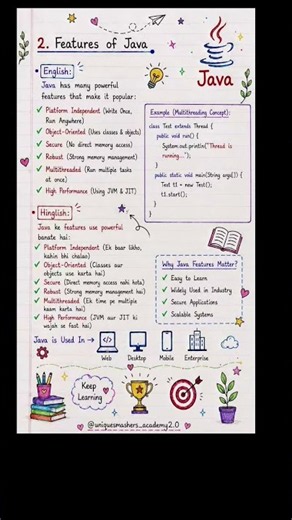 2. Features of Java
Java
English:
Java has many powerful
features that make it popular:
✓ Platform Independent (Write Once,
Run Anywhere)
✓ Object-Oriented (Uses classes & objects)
✓ Secure (No direct memory access)
✓ Robust (Strong memory management)
✓ Multithreaded (Run multiple tasks
at once)
✓ High Performance (Using JVM & JIT)
Example (Multithreading Concept):
class Test extends Thread {
public void run() {
System.out.println("Thread is
running...");
}
public static void main(String args[]) {
Test t1 = new Test();
t1.start();
}
}
Hinglish:
Java ke features use powerful
banate hai:
✓ Platform Independent (Ek baar likho,
kahin bhi chalao)
✓ Object-Oriented (Classes aur
objects use karta hai)
✓ Secure (Direct memory access nahi hota)
✓ Robust (Strong memory management hai)
✓ Multithreaded (Ek time pe multiple
kaam karta hai)
✓ High Performance (JVM aur JIT ki
wajah se fast hai)
Why Java Features Matter?
✓ Easy to Learn
✓ Widely Used in Industry
✓ Secure Applications
✓ Scalable Systems
Java is Used In →
Web
Desktop
Mobile
Enterprise
Keep
Learning
@uniquesmashers_academy2.0